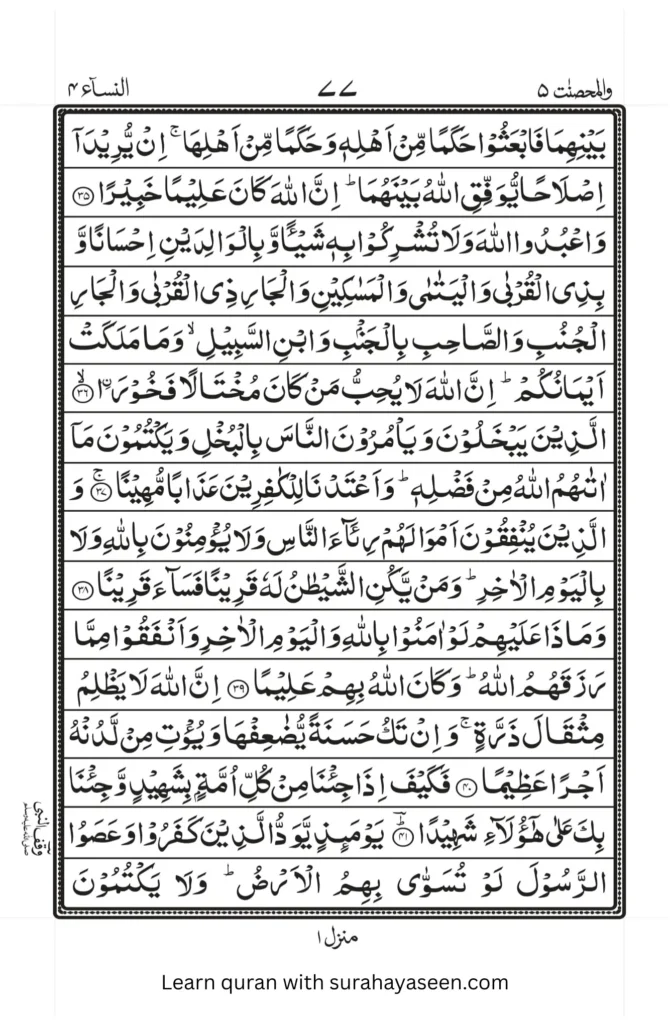 والمحصنت ۵ ۷۷ النسآء ۴
بَيۡنِهِمَا فَابۡعَثُوۡا حَكَمًا مِّنۡ اَهۡلِهٖ وَحَكَمًا مِّنۡ اَهۡلِهَا‌ ۚ اِنۡ يُّرِيۡدَاۤ
اِصۡلَاحًا يُّوَفِّقِ اللّٰهُ بَيۡنَهُمَا‌ ؕ اِنَّ اللّٰهَ كَانَ عَلِيۡمًا خَبِيۡرًا ۝۳۵
وَاعۡبُدُوا اللّٰهَ وَلَا تُشۡرِكُوۡا بِهٖ شَيۡـًٔـا وَّبِالۡوَالِدَيۡنِ اِحۡسَانًا وَّ
بِذِى الۡقُرۡبٰى وَالۡيَتٰمٰى وَالۡمَسٰكِيۡنِ وَالۡجَارِ ذِى الۡقُرۡبٰى وَالۡجَارِ
الۡجُنُبِ وَالصَّاحِبِ بِالۡجَنۡۢبِ وَابۡنِ السَّبِيۡلِ ۙ وَمَا مَلَكَتۡ
اَيۡمَانُكُمۡ‌ ؕ اِنَّ اللّٰهَ لَا يُحِبُّ مَنۡ كَانَ مُخۡتَالًا فَخُوۡرَاۨ ۙ‏ ۝۳۶
الَّذِيۡنَ يَبۡخَلُوۡنَ وَيَاۡمُرُوۡنَ النَّاسَ بِالۡبُخۡلِ وَيَكۡتُمُوۡنَ مَاۤ
اٰتٰٮهُمُ اللّٰهُ مِنۡ فَضۡلِهٖ‌ ؕ وَاَعۡتَدۡنَا لِلۡكٰفِرِيۡنَ عَذَابًا مُّهِيۡنًا‌ ۚ ۝۳۷ وَ
الَّذِيۡنَ يُنۡفِقُوۡنَ اَمۡوَالَهُمۡ رِئَآءَ النَّاسِ وَلَا يُؤۡمِنُوۡنَ بِاللّٰهِ وَلَا
بِالۡيَوۡمِ الۡاٰخِرِ‌ ؕ وَمَنۡ يَّكُنِ الشَّيۡطٰنُ لَهٗ قَرِيۡنًا فَسَآءَ قَرِيۡنًا ۝۳۸
وَمَاذَا عَلَيۡهِمۡ لَوۡ اٰمَنُوۡا بِاللّٰهِ وَالۡيَوۡمِ الۡاٰخِرِ وَاَنۡفَقُوۡا مِمَّا
رَزَقَهُمُ اللّٰهُ‌ ؕ وَكَانَ اللّٰهُ بِهِمۡ عَلِيۡمًا ۝۳۹ اِنَّ اللّٰهَ لَا يَظۡلِمُ
مِثۡقَالَ ذَرَّةٍ‌ ۚ وَاِنۡ تَكُ حَسَنَةً يُّضٰعِفۡهَا وَيُؤۡتِ مِنۡ لَّدُنۡهُ
اَجۡرًا عَظِيۡمًا ۝۴۰ فَكَيۡفَ اِذَا جِئۡنَا مِنۡ كُلِّ اُمَّةٍۭ بِشَهِيۡدٍ وَّجِئۡنَا
بِكَ عَلٰى هٰٓؤُلَاۤءِ شَهِيۡدًا ؕ ۝۴۱ يَوۡمَٮِٕذٍ يَّوَدُّ الَّذِيۡنَ كَفَرُوۡا وَعَصَوُا
الرَّسُوۡلَ لَوۡ تُسَوّٰى بِهِمُ الۡاَرۡضُ ؕ وَلَا يَكۡتُمُوۡنَ
وقف النبی صلی اللہ علیہ وسلم
منزل ۱
Learn quran with surahayaseen.com